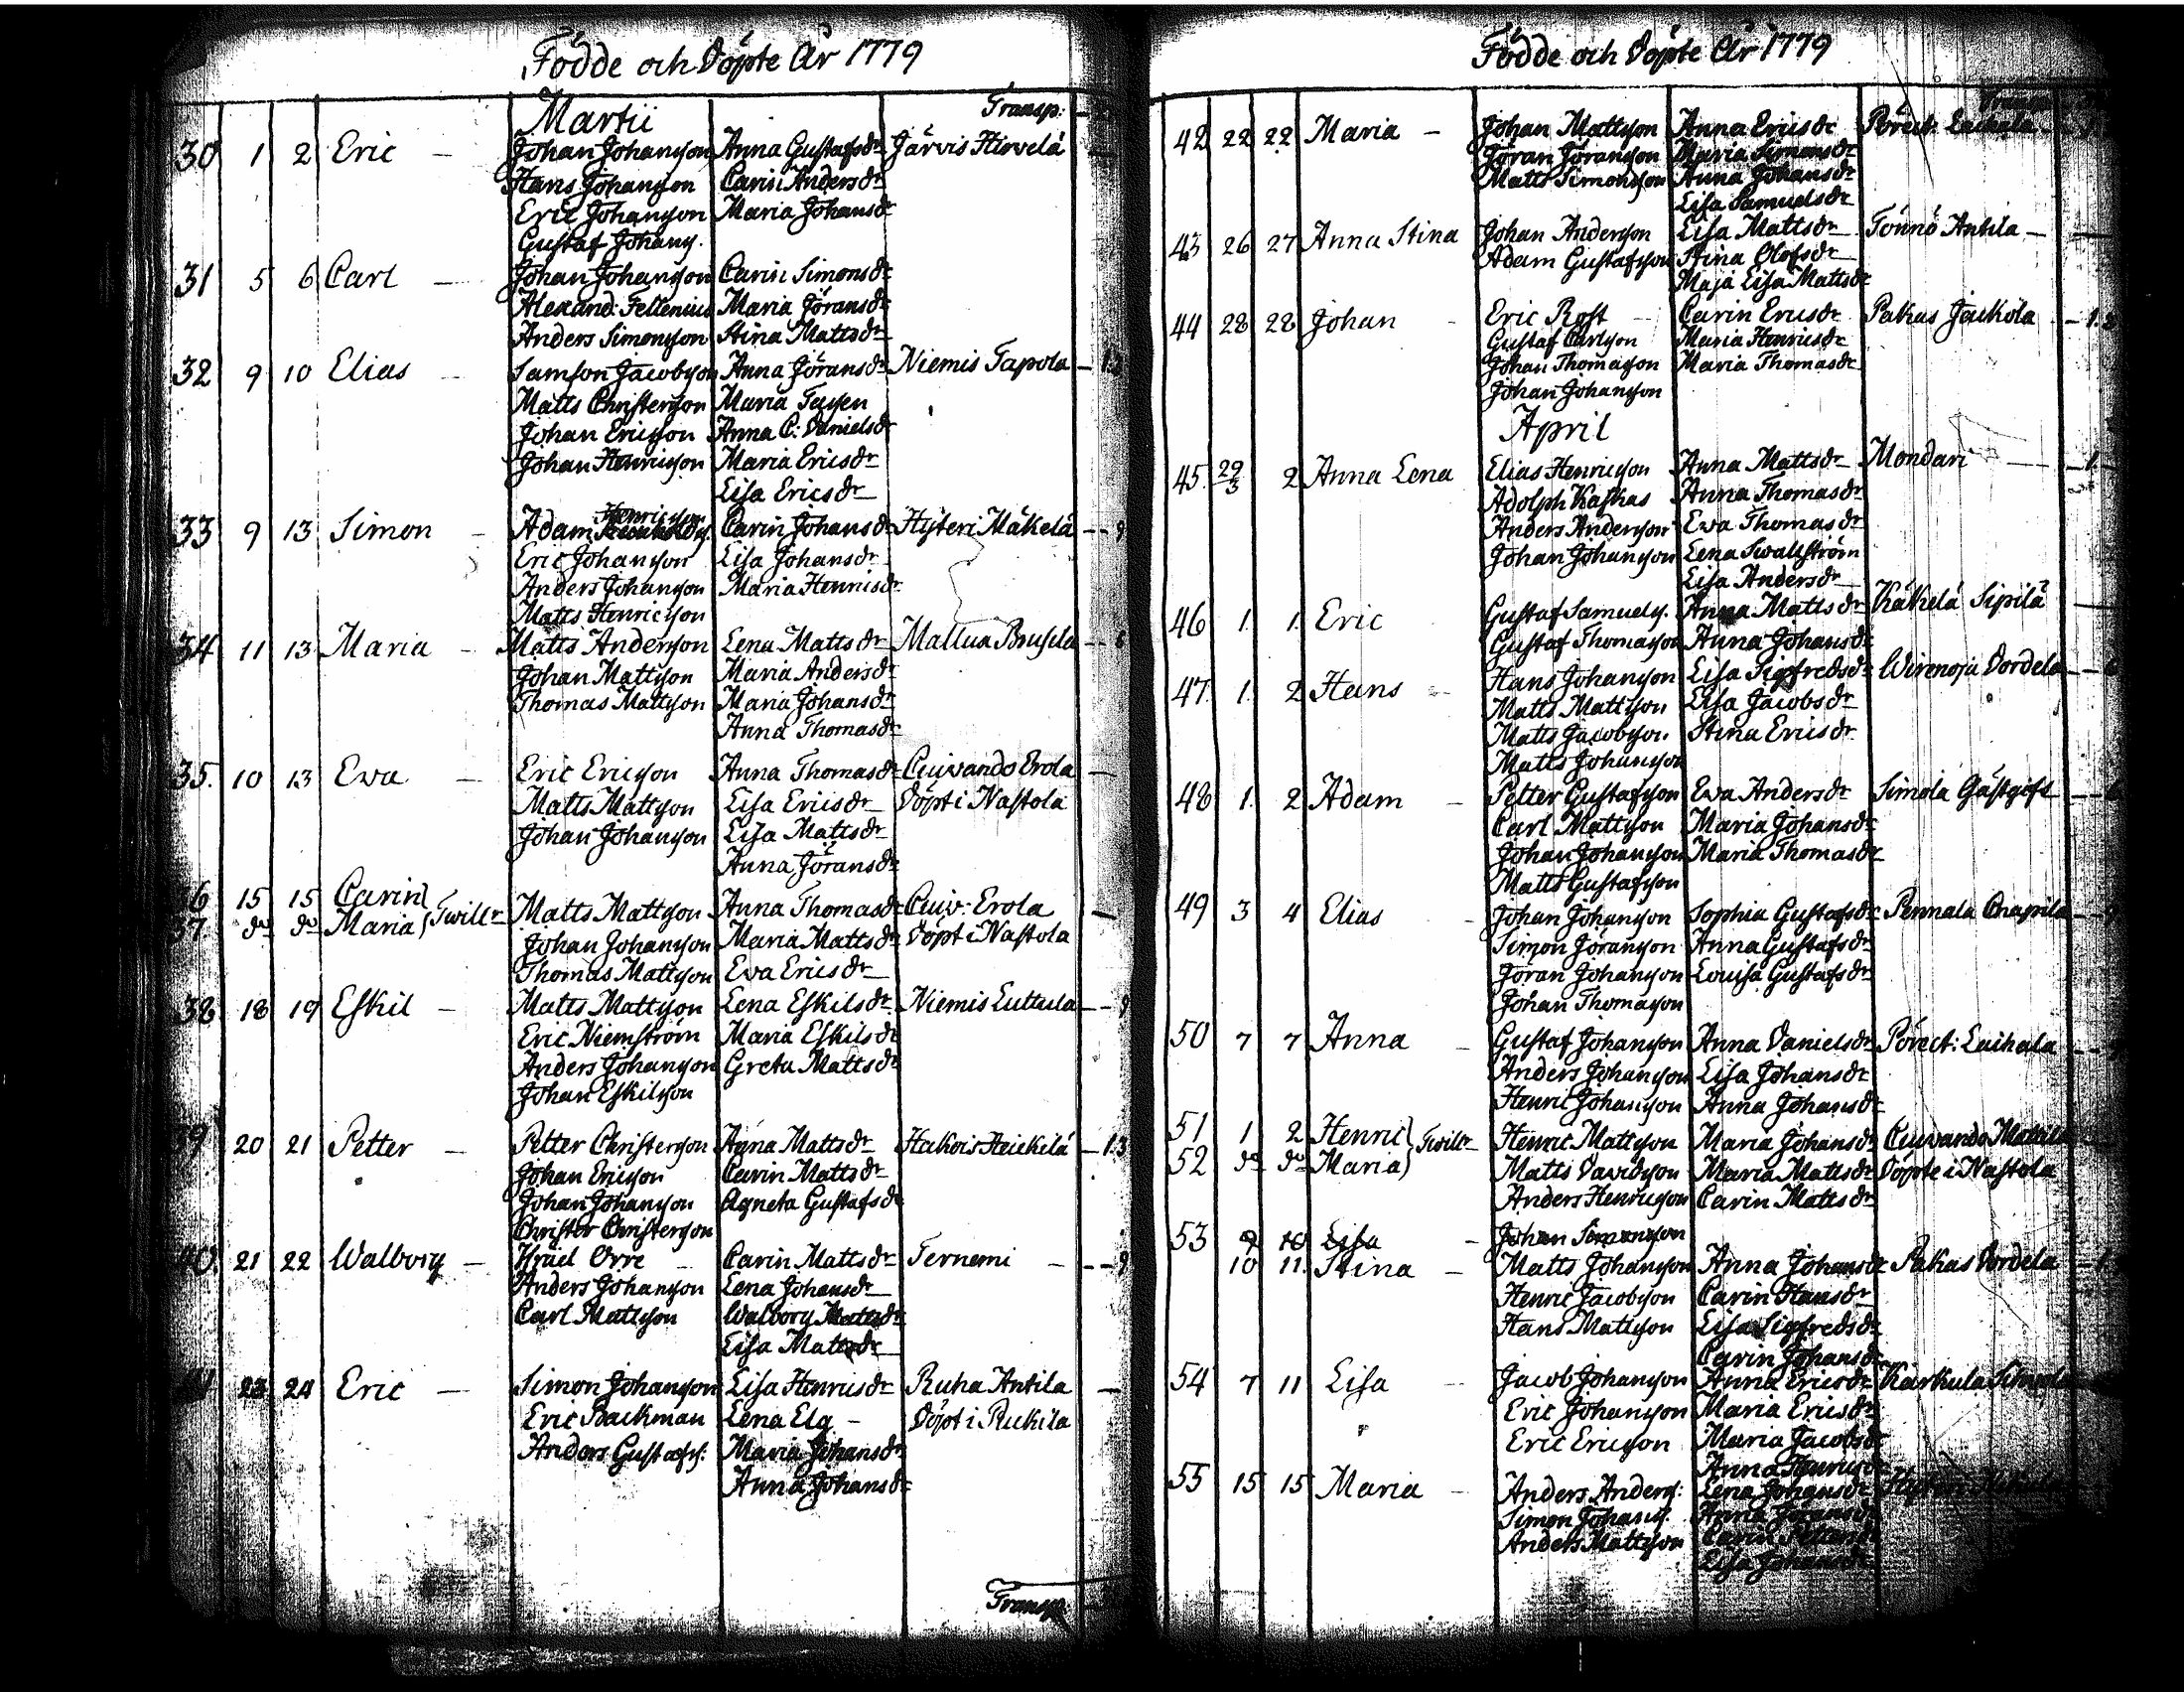 Födde och Döpte År 1779
Transp:
Martii
30 1 2 Eric – Johan Johansson Anna Gustafsdr Järvis Hirvelä
Hans Johansson Carin Andersdr
Eric Johansson Maria Johansdr
Gustaf Johans.
31 5 6 Carl – Johan Johansson Carin Simonsdr
Alexand: Fellenius Maria Göransdr
Anders Simonsson Stina Mattsdr
32 9 10 Elias – Samson Jacobsson Anna Göransdr Niemis Tapola
Matts Christersson Maria
Johan Ericsson Anna C: Danielsdr
Johan Henricsson Maria Ericsdr
Lisa Ericsdr
33 9 13 Simon – Adam Henricsson Carin Johansdr Hyteri Mäkelä - - 9
Eric Johansson Lisa Johansdr
Anders Johansson Maria Henricsdr
Matts Henricsson
34 11 13 Maria – Matts Andersson Lena Mattsdr Mallua Brusila - - 6
Johan Mattsson Maria Andersdr
Thomas Mattsson Maria Johansdr
Anna Thomasdr
35. 10 13 Ewa – Eric Ericsson Anna Thomasdr Cuivando Erola –
Matts Mattsson Lisa Ericsdr Döpt i Nastola
Johan Johansson Lisa Mattsdr
Anna Göransdr
36 15 15 Carin
37 do do Maria } Twill:r Matts Mattsson Anna Thomasdr Cuiv: Erola –
Johan Johansson Maria Mattsdr Döpt i Nastola
Thomas Mattsson Ewa Ericsdr
38 18 19 Eskil – Matts Mattsson Lena Eskilsdr Niemis Luttula - - 9
Eric Niemström Maria Eskilsdr
Anders Johansson Greta Mattsdr
Johan Eskilsson
39 20 21 Petter – Petter Christersson Anna Mattsdr Hakois Heickilä – 1.3
Johan Ericsson Carin Mattsdr
Johan Johansson Agneta Gustafsdr
Christer Christersson
40 21 22 Walborg – Israel Orre – Carin Mattsdr Ternemi – - - 9
Anders Johansson Lena Johansdr
Carl Mattsson Walborg Mattsdr
Lisa Mattsdr
41 23 24 Eric – Simon Johansson Lisa Henricsdr Ruha Antila –
Eric Backman Lena Elg – Döpt i Ruckila
Anders Gustafs: Maria Johansdr
Anna Johansdr
Transp:
Födde och Döpte År 1779
Transp:
42 22 22 Maria – Johan Mattsson Anna Ericsdr Pörect: Laihala
Göran Göransson Maria Simonsdr
Matts Simonsson Anna Johansdr
Lisa Samuelsdr
43 26 27 Anna Stina Johan Andersson Lisa Mattsdr Tönnö Antila –
Adam Gustafsson Stina Olofsdr
Maja Lisa Mattsdr
44 28 28 Johan – Eric Rost Carin Ericsdr Pakas Jackola
Gustaf Carlsson Maria Henricsdr
Johan Thomasson Maria Thomasdr
Johan Johansson
April
45. 29/3 2 Anna Lena Elias Henricsson Anna Mattsdr Mondari – – 1.
Adolph Kaskas Anna Thomasdr
Anders Andersson Ewa Thomasdr
Johan Johansson Lena Swalström
Lisa Andersdr
46 1. 1. Eric Gustaf Samuels. Anna Mattsdr Käkelä Sipilä –
Gustaf Thomasson Anna Johansdr
47. 1. 2 Hans – Hans Johansson Lisa Sigfredsdr Wirenoja Dordela – 6
Matts Mattsson Lisa Jacobsdr
Matts Jacobsson Stina Ericsdr
Matts Johansson
48 1. 2 Adam – Petter Gustafsson Ewa Andersdr Simola Gästgift – 6
Carl Mattsson Maria Johansdr
Johan Johansson Maria Thomasdr
Matts Gustafsson
49 3 4 Elias – Johan Johansson Sophia Gustafsdr Pennala Knapila
Simon Göransson Anna Gustafsdr
Göran Johansson Lovisa Gustafsdr
Johan Thomasson
50 7 7 Anna – Gustaf Johansson Anna Danielsdr Pörect: Laihala
Anders Johansson Lisa Johansdr
Henric Johansson Anna Johansdr
51 1 2 Henric
52 do do Maria } Twill:r Henric Mattsson Maria Johansdr Cuivando Mattila
Matts Davidsson Maria Mattsdr Döpte i Nastola
Anders Henricsson Carin Mattsdr
53 9 10 Lisa – Johan Simonsson
10 11. Stina – Matts Johansson Anna Johansdr Pakas Dordela – 1.
Henric Jacobsson Carin Hansdr
Hans Mattsson Lisa Sigfredsdr
Carin Johansdr
54 7 11 Lisa – Jacob Johansson Anna Ericsdr Karkula Simola
Eric Johansson Maria Ericsdr
Eric Ericsson Maria Jacobsdr
Anna Henricsdr
55 15 15 Maria – Anders Anders: Lena Johansdr
Simon Johans. Anna Göransdr
Anders Mattsson Carin
Lisa Johansdr